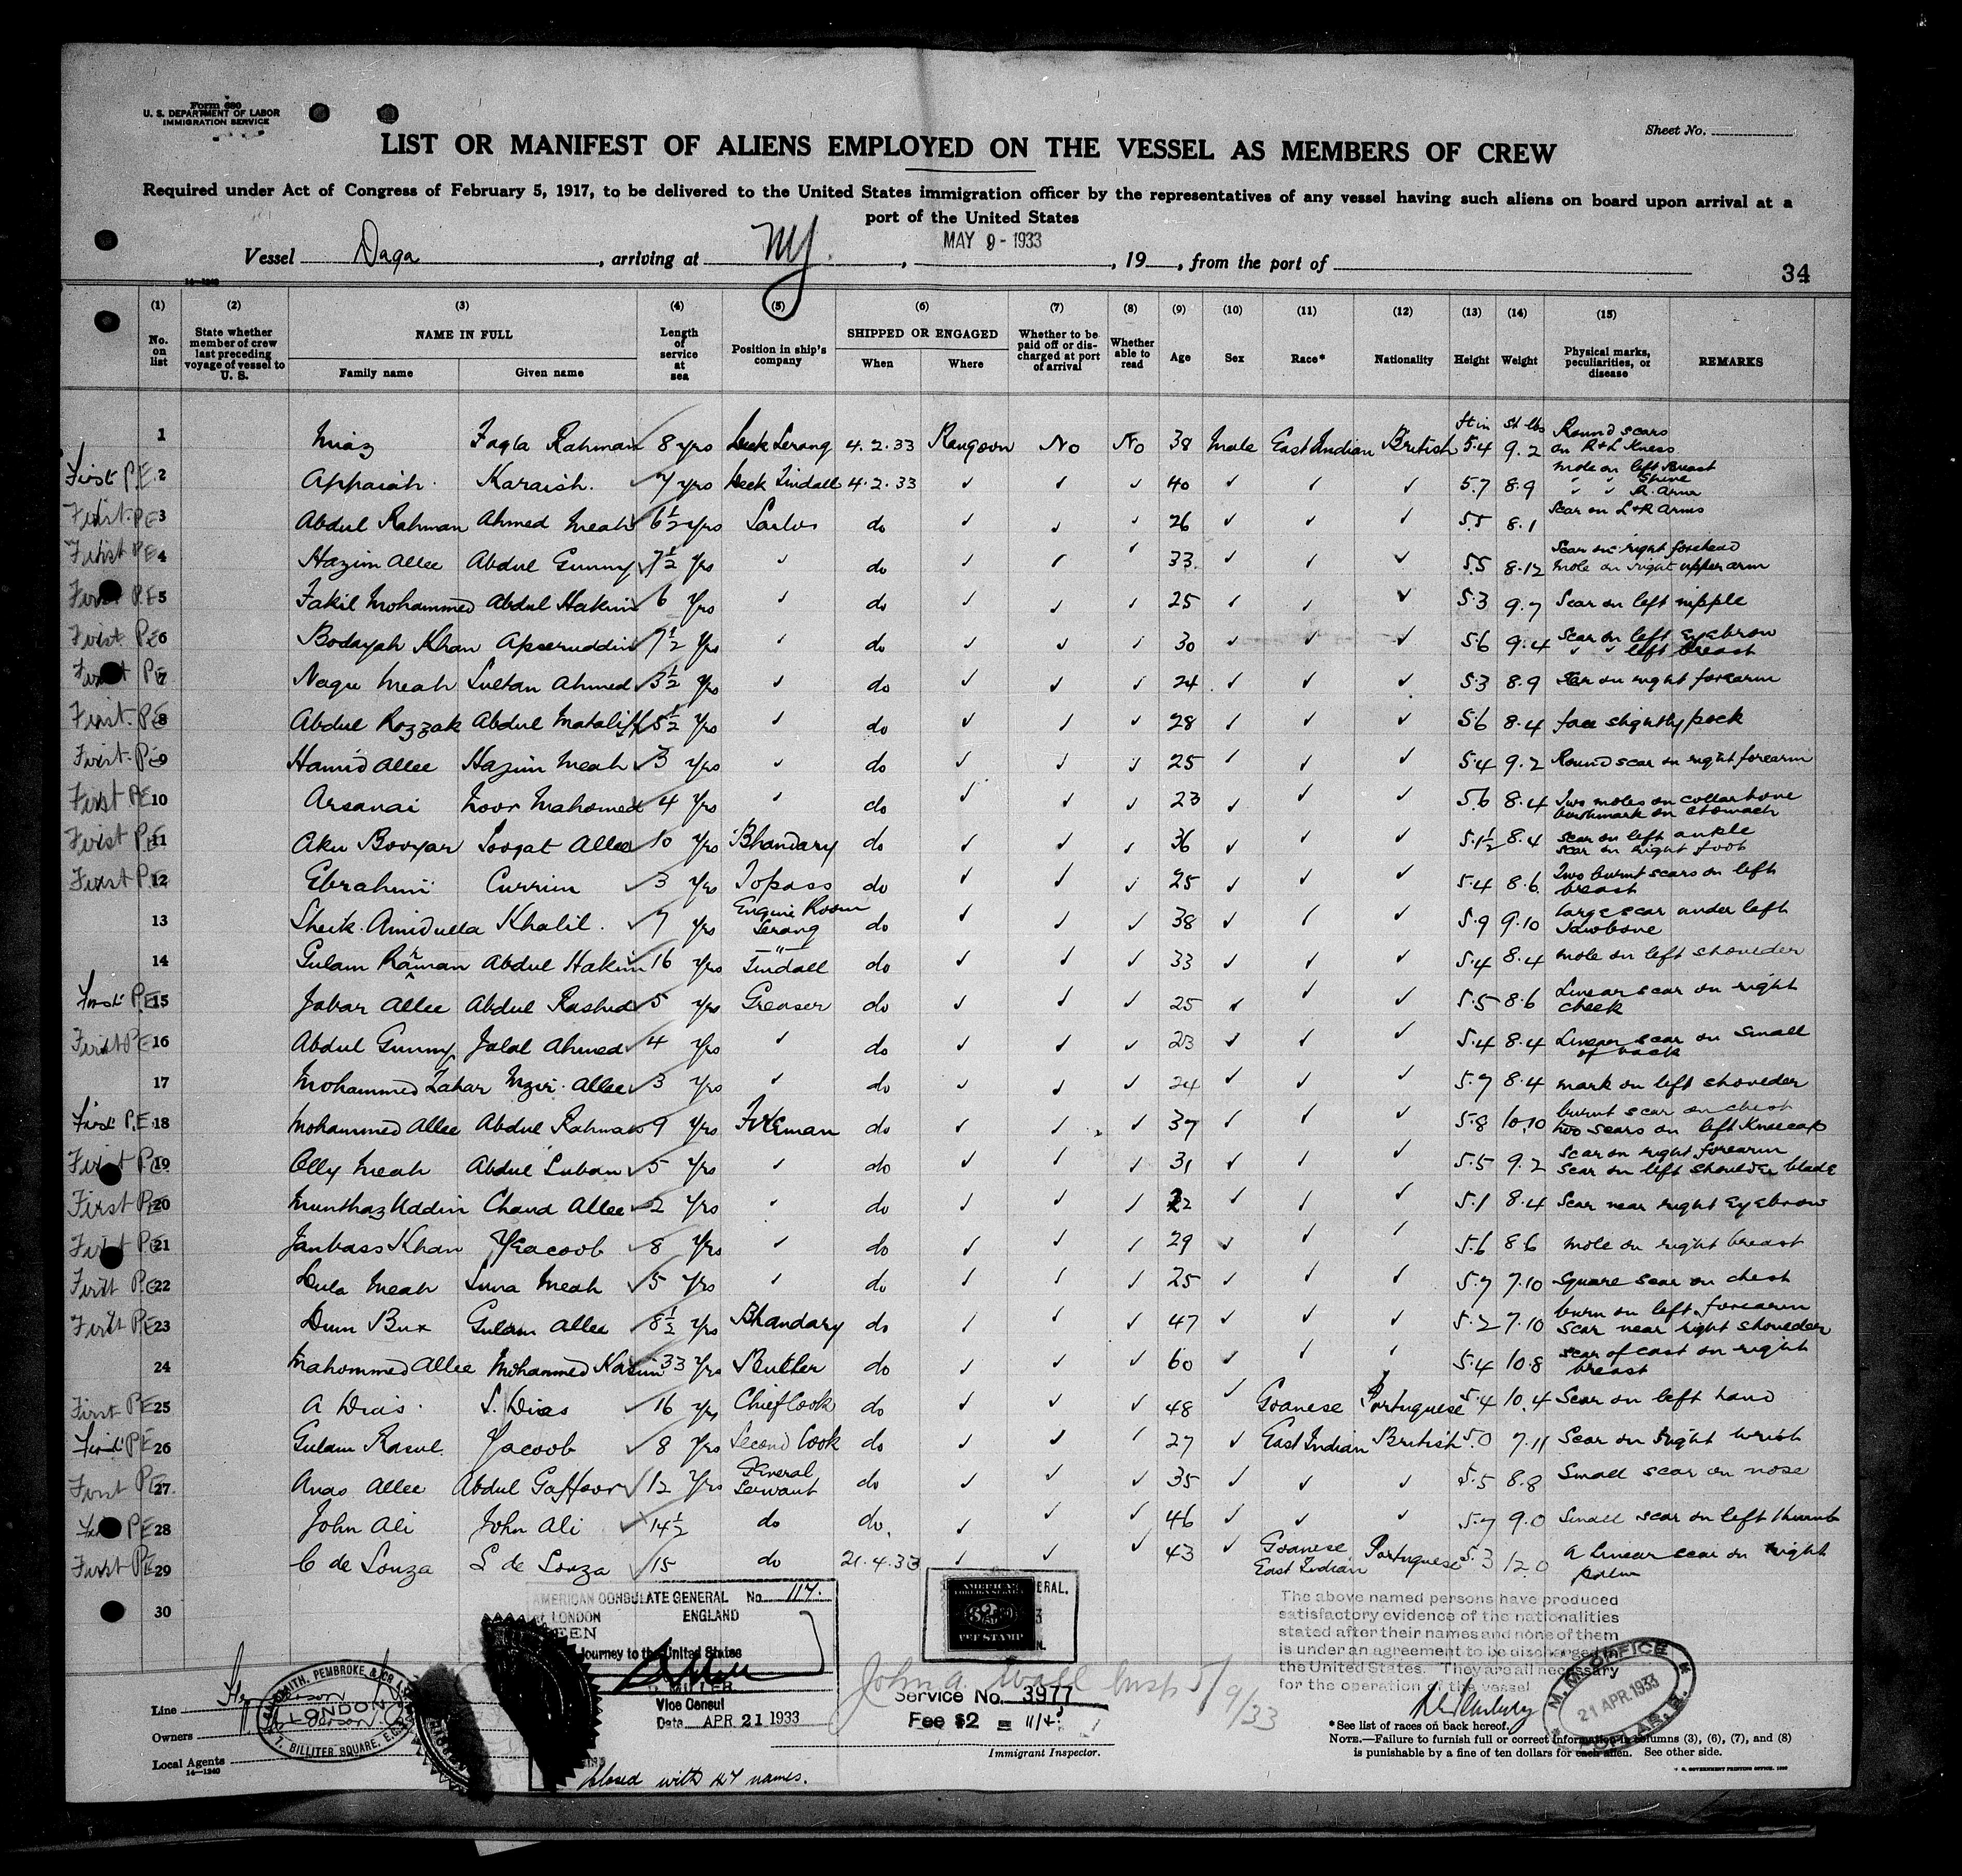 Form 680
U. S. DEPARTMENT OF LABOR
IMMIGRATION SERVICE
Sheet No.
LIST OR MANIFEST OF ALIENS EMPLOYED ON THE VESSEL AS MEMBERS OF CREW
Required under Act of Congress of February 5, 1917, to be delivered to the United States immigration officer by the representatives of any vessel having such aliens on board upon arrival at a
port of the United States
Vessel Daga, arriving at NY., MAY 9 - 1933, 19, from the port of
34
(1) (2) (3) (4) (5) (6) (7) (8) (9) (10) (11) (12) (13) (14) (15)
No. on list State whether member of crew last preceding voyage of vessel to U. S. NAME IN FULL Family name Given name Length of service at sea Position in ship's company SHIPPED OR ENGAGED When Where Whether to be paid off or discharged at port of arrival Whether able to read Age Sex Race* Nationality Height Weight Physical marks, peculiarities, or disease REMARKS
1 Miaz Fazla Rahman 8 yrs Deck Serang 4.2.33 Rangoon No No 38 Male East Indian British ft in 5.4 st lbs 9.2 Round scars on R & L Knees
First P.E. 2 Appaiah Karaish. 7 yrs Deck Tindall 4.2.33 ✓ ✓ ✓ 40 ✓ ✓ ✓ 5.7 8.9 mole on left Breast " " Shine " " R. arm
First P.E 3 Abdul Rahman Ahmed Meah 6½ yrs do ✓ ✓ ✓ 26 ✓ ✓ ✓ 5.5 8.1 Scar on L & R Arms
First P.E 4 Hazim Allee Abdul Gunny 7½ yrs ✓ do ✓ ✓ ✓ 33 ✓ ✓ ✓ 5.5 8.12 Scar on right forehead mole on right upper arm
First P.E 5 Fakil Mohammed Abdul Hakim 6 Yrs ✓ do ✓ ✓ ✓ 25 ✓ ✓ ✓ 5.3 9.7 Scar on left nipple
First P.E 6 Bodayah Khan Apseruddin 7½ Yrs ✓ do ✓ ✓ ✓ 30 ✓ ✓ ✓ 5.6 9.4 Scar on left Eyebrow " " left breast
First P.E 7 Nagu Meah Sultan Ahmed 3½ Yrs ✓ do ✓ ✓ ✓ 24 ✓ ✓ ✓ 5.3 8.9 Scar on right forearm
First P.E 8 Abdul Rozzak Abdul Mataliff 5½ Yrs ✓ do ✓ ✓ ✓ 28 ✓ ✓ ✓ 5.6 8.4 face slightly pock
First P.E 9 Hamid Allee Hazim Meah 3 Yrs ✓ do ✓ ✓ ✓ 25 ✓ ✓ ✓ 5.4 9.2 Round scar on right forearm
First P.E 10 Arsanai Noor Mahomed 4 Yrs ✓ do ✓ ✓ ✓ 23 ✓ ✓ ✓ 5.6 8.4 Two moles on collar bone birthmark on stomach
First P.E 11 Aku Booyar Soogat Allee 10 Yrs Bhandary do ✓ ✓ ✓ 36 ✓ ✓ ✓ 5.1½ 8.4 Scar on left ankle scar on right foot
First P.E 12 Ebrahim Currim 3 Yrs Topass do ✓ ✓ ✓ 25 ✓ ✓ ✓ 5.4 8.6 Two burnt scars on left breast
13 Sheik Amidulla Khalil. 7 yrs Engine Room Serang do ✓ ✓ ✓ 38 ✓ ✓ ✓ 5.9 9.10 large scar under left Jawbone
14 Gulam Rahman Abdul Hakim 16 Yrs " Tindall do ✓ ✓ ✓ 33 ✓ ✓ ✓ 5.4 8.4 mole on left shoulder
First P.E 15 Jabar Allee Abdul Rashid 5 Yrs Greaser do ✓ ✓ ✓ 25 ✓ ✓ ✓ 5.5 8.6 Linear scar on right cheek
First P.E 16 Abdul Gunny Jalal Ahmed 4 Yrs ✓ do ✓ ✓ ✓ 23 ✓ ✓ ✓ 5.4 8.4 Linear scar on small of back
17 Mohammed Zahar Allee 3 Yrs ✓ do ✓ ✓ ✓ 24 ✓ ✓ ✓ 5.7 8.4 mark on left shoulder
First P.E. 18 Mohammed Allee Abdul Rahman 9 Yrs Fireman do ✓ ✓ ✓ 37 ✓ ✓ ✓ 5.8 10.10 burnt scar on chest two scars on left Kneecap
First P.E 19 Olly Meah Abdul Suban 5 Yrs ✓ do ✓ ✓ ✓ 31 ✓ ✓ ✓ 5.5 9.2 Scar on right forearm Scar on left shoulder blade
First P.E 20 Munthaz Uddin Chand Allee 2 Yrs ✓ do ✓ ✓ ✓ 22 ✓ ✓ ✓ 5.1 8.4 Scar near right Eyebrow
First P.E 21 Janbass Khan Yeacoob 8 Yrs ✓ do ✓ ✓ ✓ 29 ✓ ✓ ✓ 5.6 8.6 mole on right breast
First P.E 22 Lula Meah Suna Meah 5 Yrs ✓ do ✓ ✓ ✓ 25 ✓ ✓ ✓ 5.7 7.10 Square scar on chest
First P.E 23 Dum Bux Gulam Allee 8½ Yrs Bhandary do ✓ ✓ ✓ 47 ✓ ✓ ✓ 5.2 7.10 burn on left forearm scar near right shoulder
24 Mahommed Allee Mohammed Kasim 33 Yrs Butler do ✓ ✓ ✓ 60 ✓ ✓ ✓ 5.4 10.8 scar of cast on right breast
First P.E 25 A Dias. S. Dias 16 yrs Chief Cook do ✓ ✓ ✓ 48 ✓ Goanese Portuguese 5.4 10.4 Scar on left hand
First P.E 26 Gulam Rasul Yacoob 8 Yrs Second Cook do ✓ ✓ ✓ 27 ✓ East Indian British 5.0 7.11 Scar on right wrist
First P.E 27 Anas Allee Abdul Gaffoor 12 Yrs General Servant do ✓ ✓ ✓ 35 ✓ ✓ ✓ 5.5 8.8 Small scar on nose
First P.E 28 John Ali John Ali 14½ do do. ✓ ✓ ✓ 46 ✓ ✓ ✓ 5.7 9.0 Small scar on left thumb
First P.E 29 C de Souza S de Souza 15 do 21.4.33 ✓ ✓ ✓ 43 ✓ Goanese East Indian Portuguese 5.3 12.0 A Linear scar on right palm
30
AMERICAN CONSULATE GENERAL No. 117.
LONDON ENGLAND
SEEN
Journey to the United States
MILLER
Vice Consul
Date APR 21 1933
closed with 47 names.
AMERICAN
FOREIGN SERVICE
$2
FEE STAMP
John A. Wall Insp 5/9/33
Service No. 3977
Fee $2 =
Immigrant Inspector.
The above named persons have produced
satisfactory evidence of the nationalities
stated after their names and none of them
is under an agreement to be discharged in
the United States. They are all necessary
for the operation of the vessel
M. M. OFFICE
21 APR. 1933
POPLAR, E.
Line
Owners
Local Agents
14—1240
GALBRAITH, PEMBROKE & CO. LTD.
LONDON
7, BILLITER SQUARE, E.C.
*See list of races on back hereof.
NOTE.—Failure to furnish full or correct information in columns (3), (6), (7), and (8)
is punishable by a fine of ten dollars for each alien. See other side.
U. S. GOVERNMENT PRINTING OFFICE